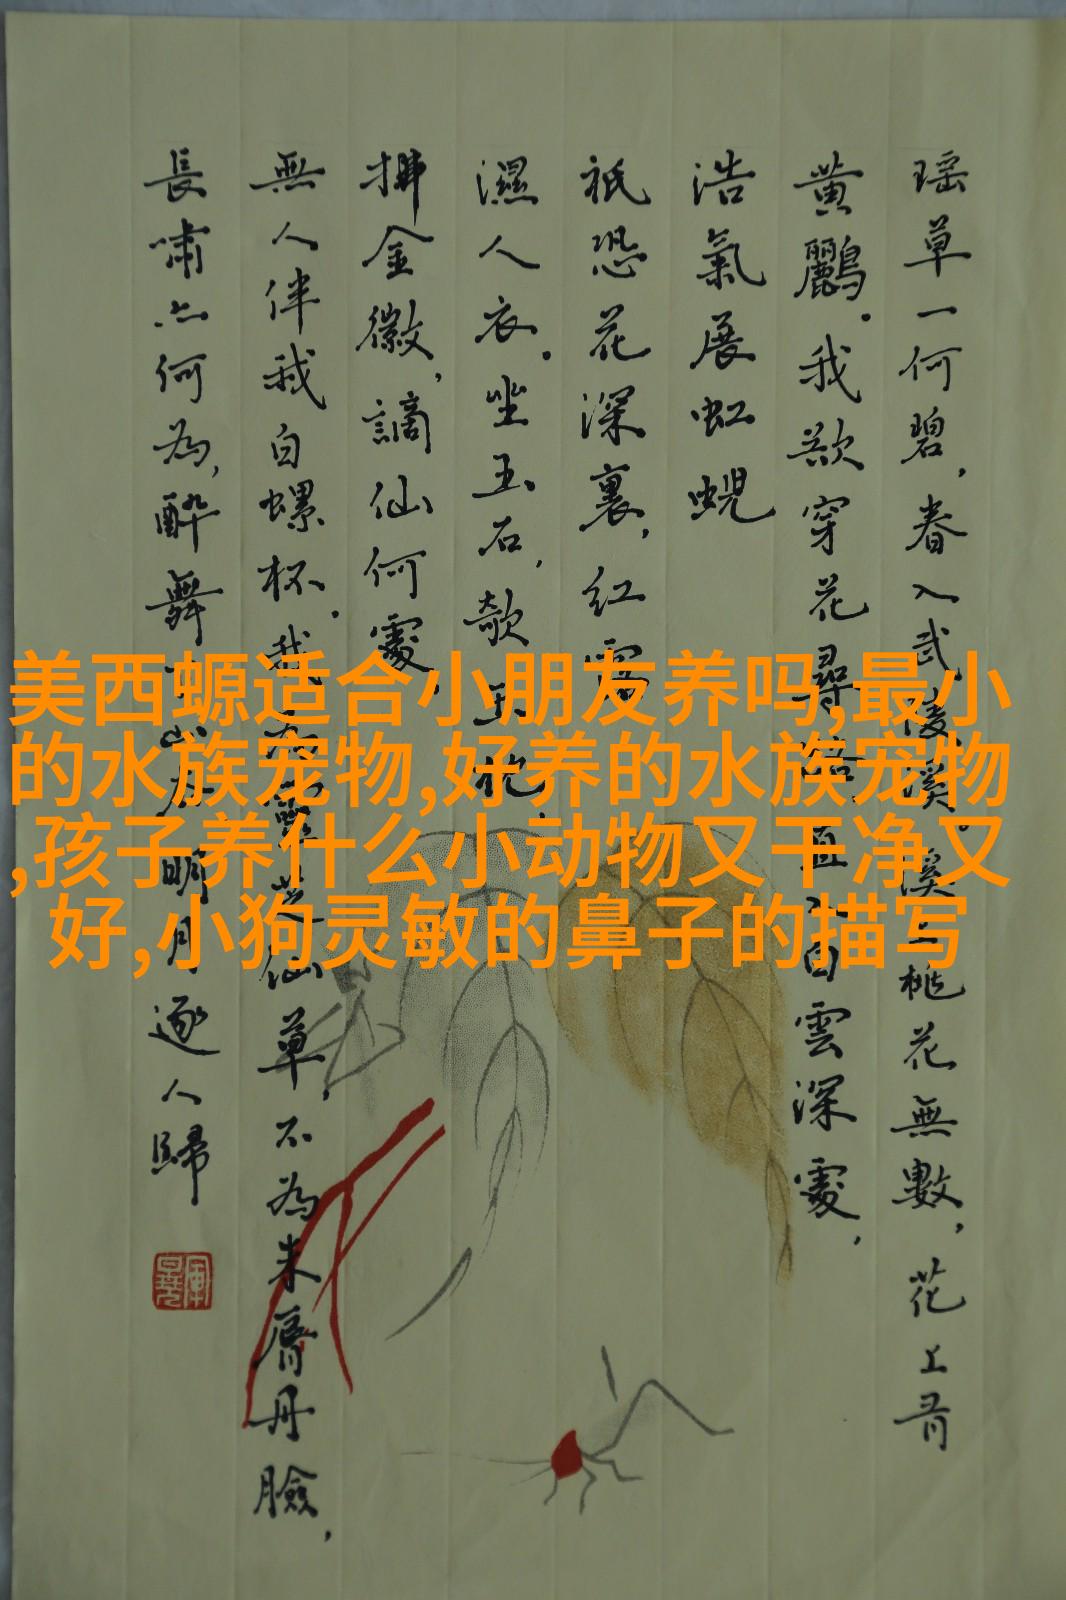 瑶草一何碧，春入武陵溪。溪上桃花無數，花上有
黄鸝。我欲穿花尋路，直入白雲深處，
浩氣展虹蜺
祇恐花深裏，红露
濕人衣。坐玉石，欹玉枕，
拂金徽，謫仙何處，
無人伴我白螺杯。我為靈芝仙草，不為朱脣丹臉，
長嘯亦何為，醉舞下山去，明月逐人歸
美西螈适合小朋友养吗,最小
的水族宠物,好养的水族宠物
,孩子养什么小动物又干净又
好,小狗灵敏的鼻子的描写